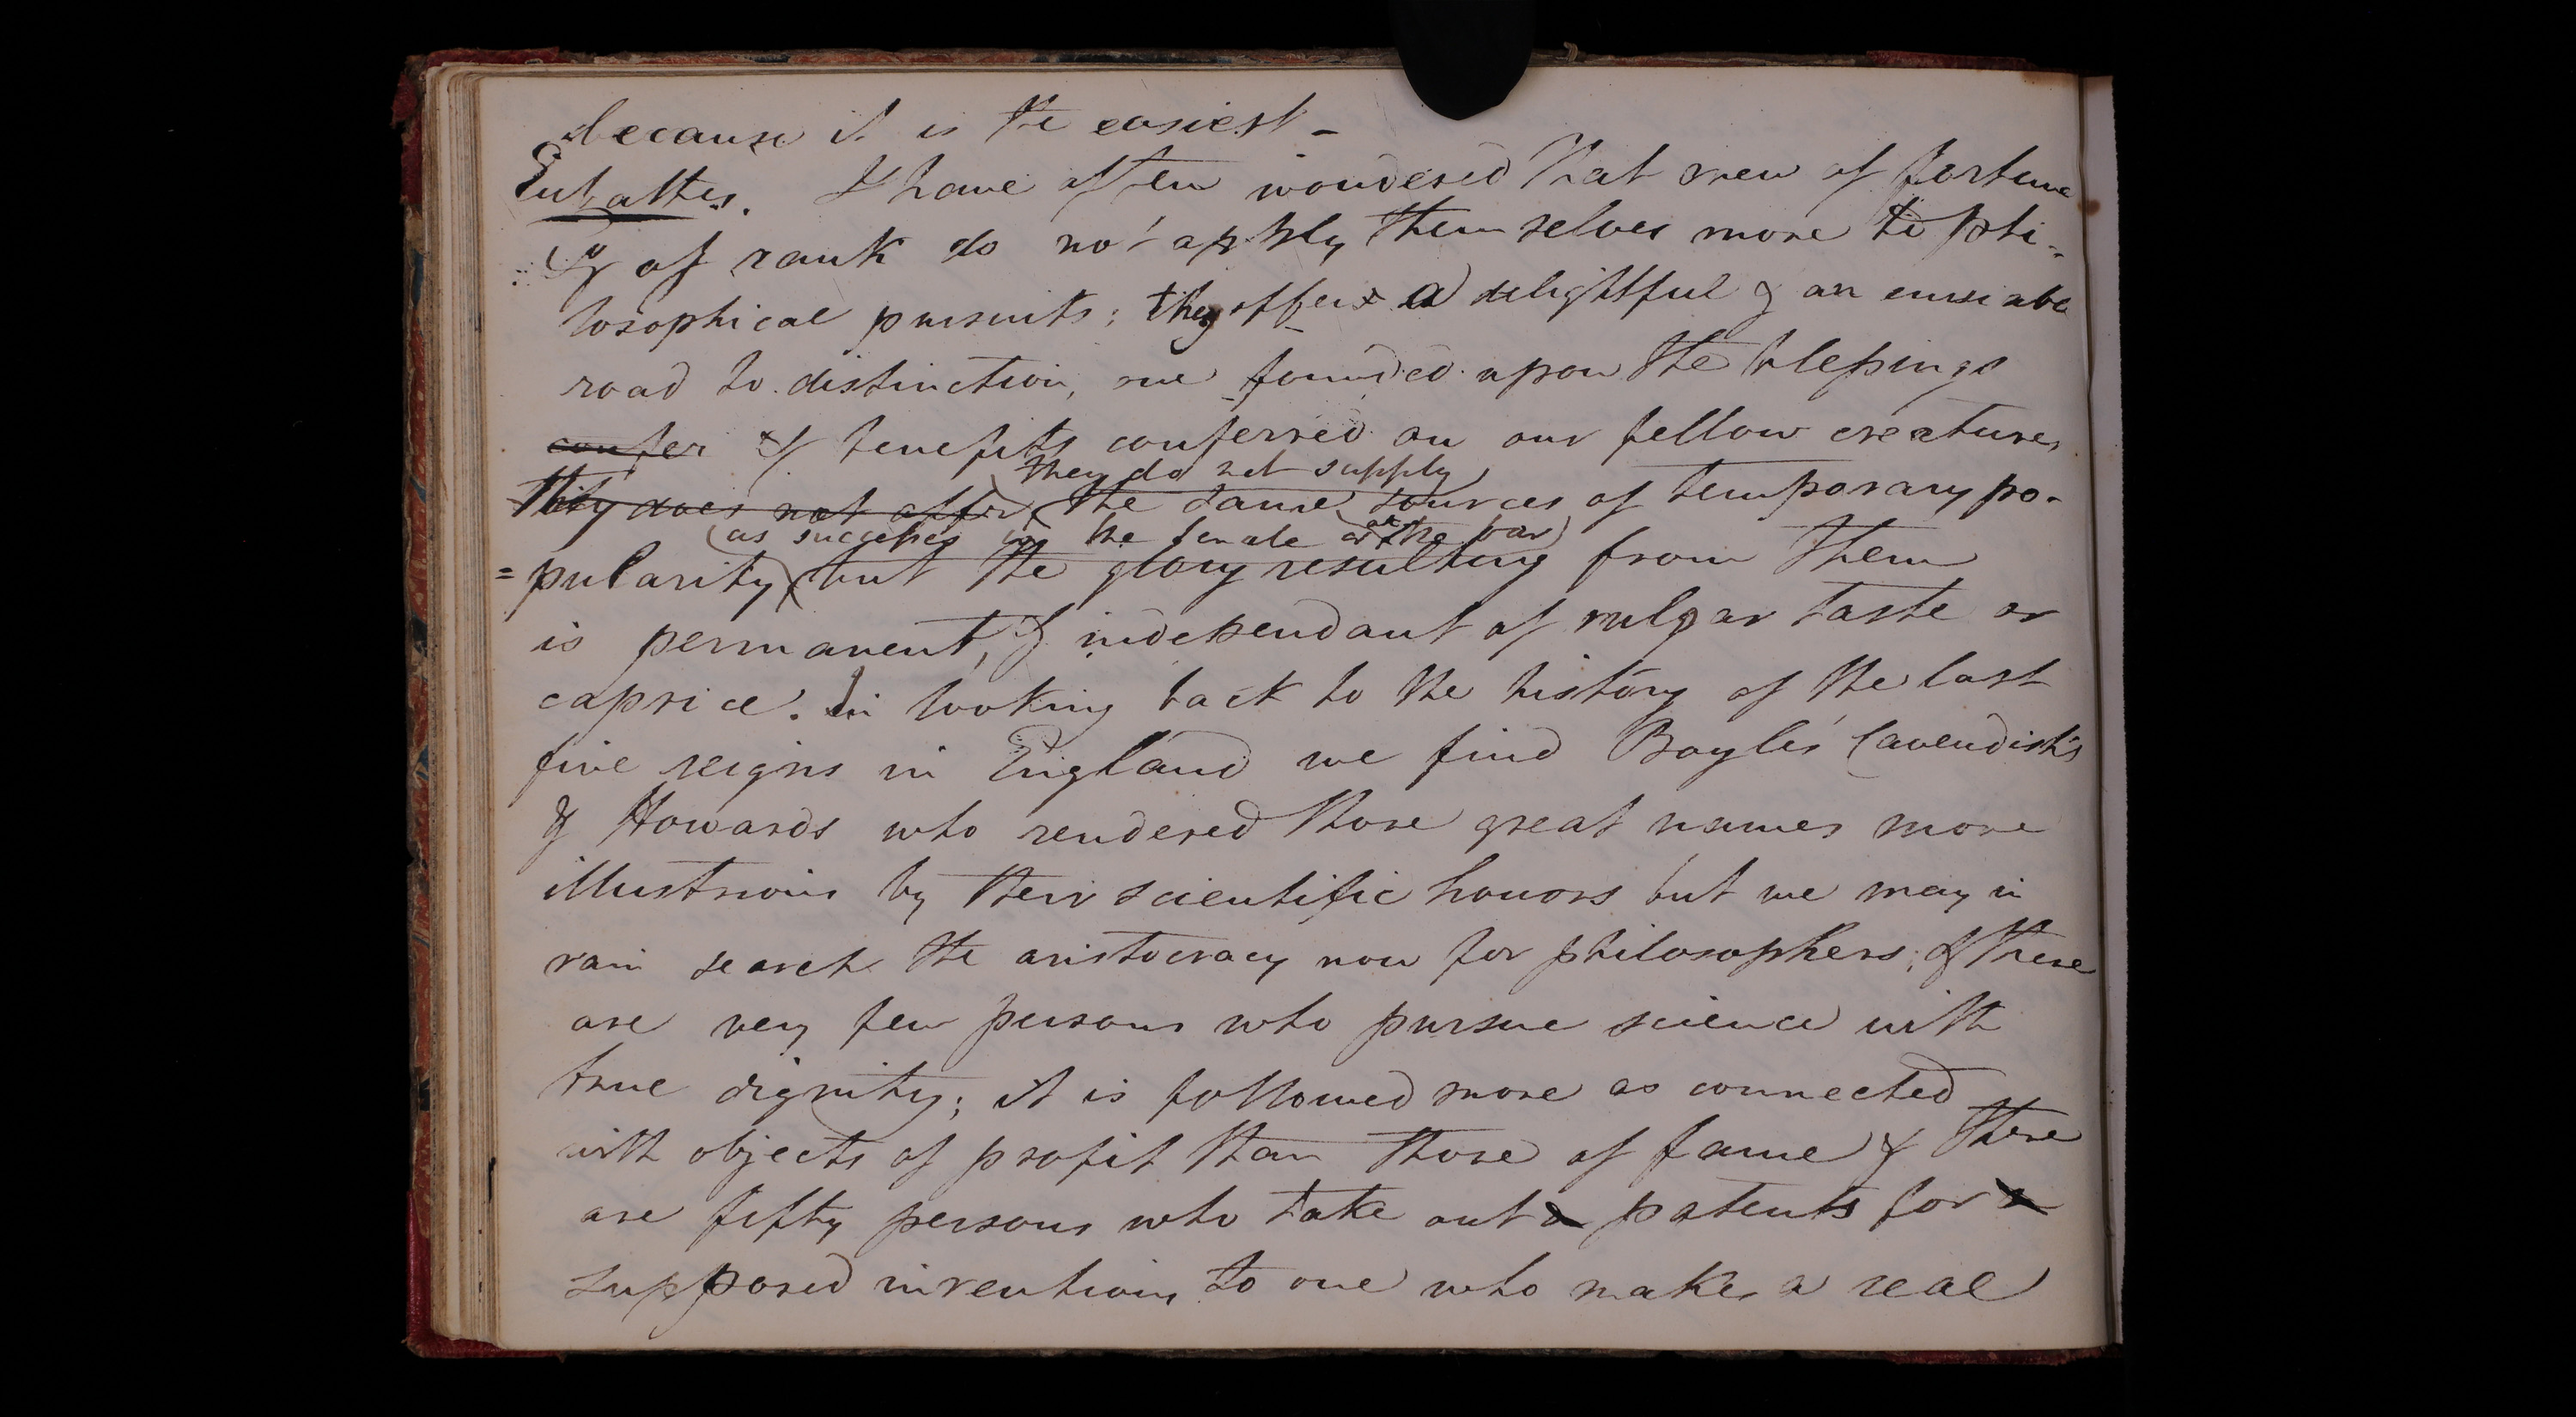 because it is the easiest -
Eubathes. I have often wondered that men of fortune
& of rank do not apply themselves more to phi-
losophical pursuits; they offer a delightful & an enviable
road to distinction, one founded upon the blessings
confer & benefits conferred on our fellow creatures
they do not supply
They does not offer the same sources of temporary po-
(as successes in the senate or at the bar)
=pularity but the glory resulting from them
is permanent, & independant of vulgar taste or
caprice. In looking back to the history of the last
five reigns in England we find Boyles Cavendish's
& Howards who rendered those great names more
illustrious by their scientific honors but we may in
vain search the aristocracy now for philosophers; & there
are very few persons who pursue science with
true dignity; it is followed more as connected
with objects of profit than those of fame & there
are fifty persons who take out a patents for a
supposed inventions to one who makes a real